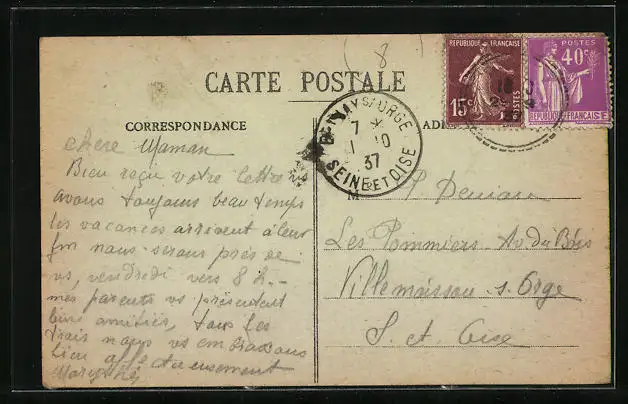 8
CARTE POSTALE
REPUBLIQUE FRANÇAISE
15c
POSTES
POSTES
40c
REPUBLIQUE FRANÇAISE
CORRESPONDANCE
SUR ORGE
7 *
1 10
37
SEINE ET OISE
M
chere Maman
Bien reçu votre lettre
avons toujours beau temps
les vacances arrivent à leur
fin nous serons près de
vs, vendredi vers 8 h. -
mes parents vs présentent
leurs amitiés, tous les
trois nous vs embrassons
bien affectueusement
Les Pommiers - Av du Bois
Villemoisson - s. Orge
S. et Oise